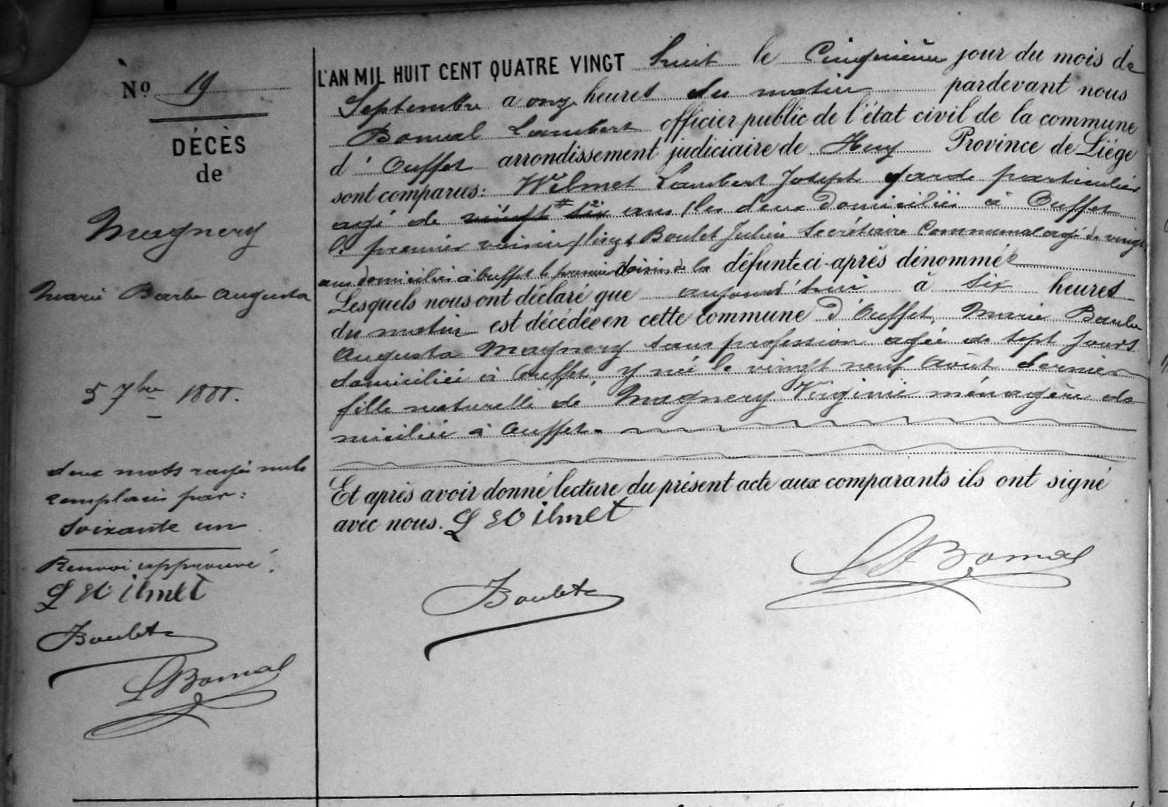 No 19
DÉCÈS
de
Magnery
Marie Barbe Augusta
5 7bre 1888.
deux mots rayés nuls
remplacés par:
Soixante un
Renvoi approuvé.
L Wilmet
Boulet
L Bomal
L'AN MIL HUIT CENT QUATRE VINGT huit le Cinquième jour du mois de
Septembre a onze heures du matin pardevant nous
Bomal Lambert officier public de l'état civil de la commune
d'Ouffet arrondissement judiciaire de Huy Province de Liége
sont comparus: Wilmet Lambert Joseph garde particulier
agé de vingt six ans les deux domiciliés à Ouffet
le premier voisin Boulet Julien Secrétaire Communal agé de vingt
ans domicilié à Ouffet le premier voisin de la défunte ci-après dénommée
Lesquels nous ont déclaré que aujourd'hui à six heures
du matin est décédée en cette commune d'Ouffet, Marie Barbe
Augusta Magnery sans profession agée de sept jours
domiciliée à Ouffet, y née le vingt neuf Août dernier
fille naturelle de Magnery Virginie ménagère do
miciliée à Ouffet.
Et après avoir donné lecture du présent acte aux comparants ils ont signé
avec nous. L Wilmet
L Bomal
Boulet